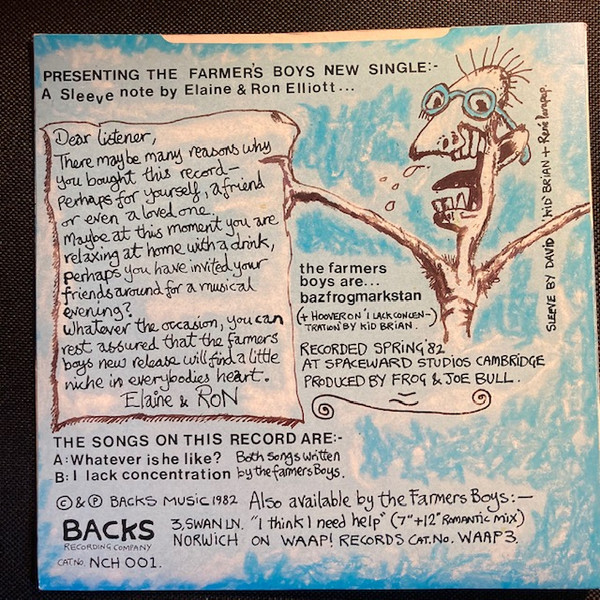 PRESENTING THE FARMER'S BOYS NEW SINGLE:-
A Sleeve note by Elaine & Ron Elliott...
Dear listener,
There may be many reasons why
you bought this record—
Perhaps for yourself, a friend
or even a loved one.
Maybe at this moment you are
relaxing at home with a drink,
perhaps you have invited your
friends around for a musical
evening?
Whatever the occasion, you can
rest assured that the farmers
boys new release will find a little
niche in everybodies heart.
Elaine & RON
the farmers
boys are...
bazfrogmarkstan
(+ HOOVER ON 'I LACK CONCEN-
TRATION' BY KID BRIAN.
RECORDED SPRING '82
AT SPACEWARD STUDIOS CAMBRIDGE
PRODUCED BY FROG & JOE BULL.
SLEEVE BY DAVID 'KID' BRIAN + René
THE SONGS ON THIS RECORD ARE:-
A: Whatever is he like? Both songs written
B: I lack concentration by the farmers Boys.
© & ℗ BACKS MUSIC 1982 Also available by the Farmers Boys:—
BACKS
RECORDING COMPANY
CAT NO. NCH 001.
3, SWAN LN.
NORWICH
"I think I need help" (7"+12" ROMANTIC MIX)
ON WAAP! RECORDS CAT. NO. WAAP 3.